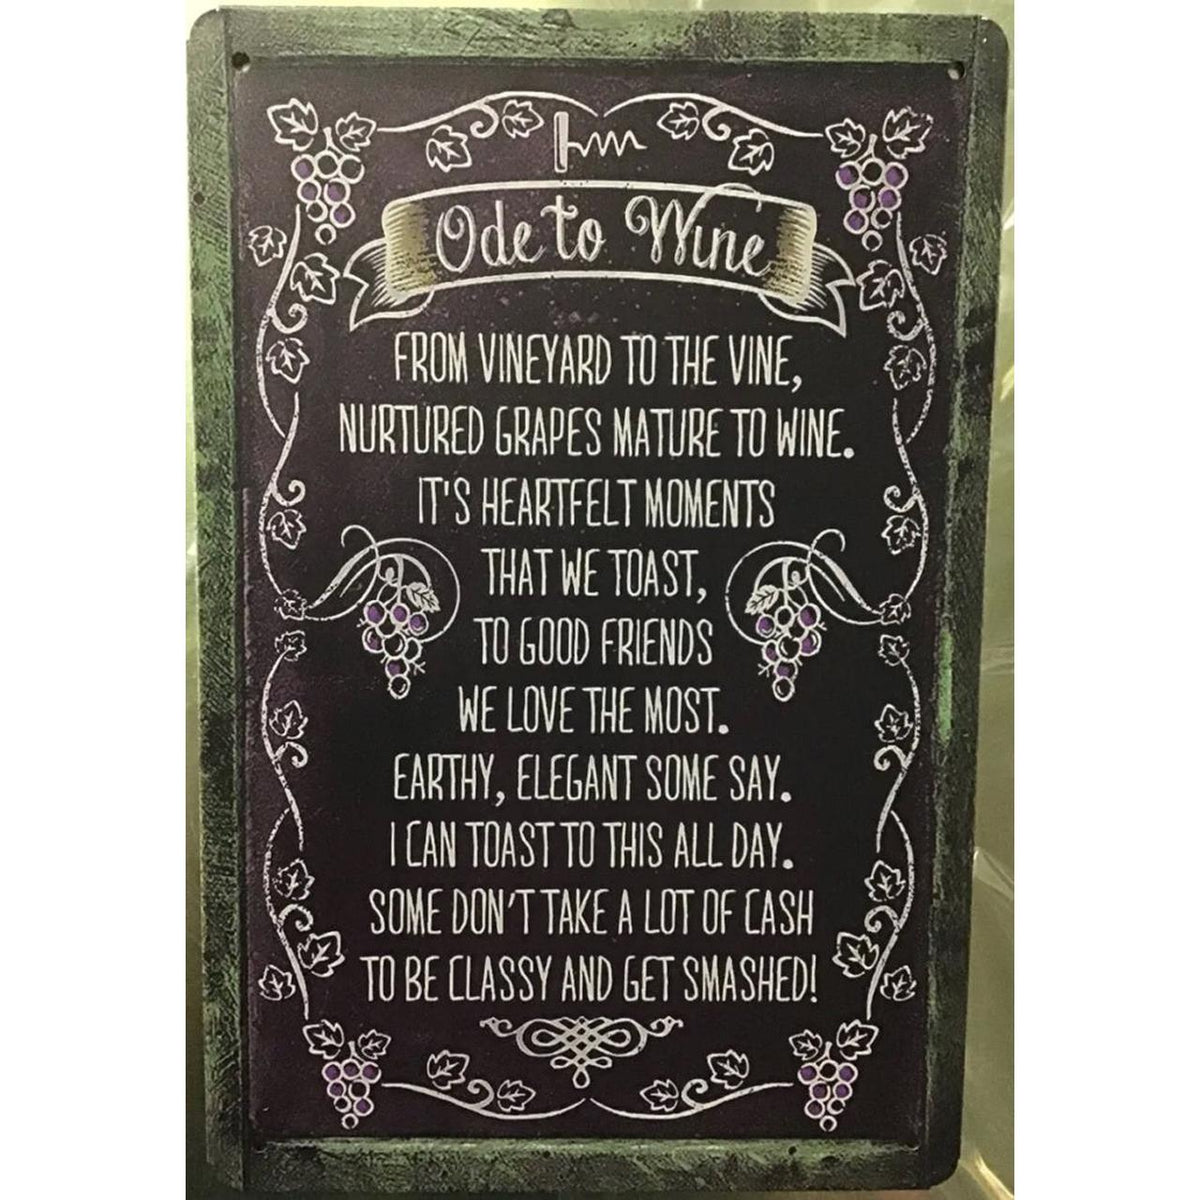 Ode to Wine
FROM VINEYARD TO THE VINE,
NURTURED GRAPES MATURE TO WINE.
IT'S HEARTFELT MOMENTS
THAT WE TOAST,
TO GOOD FRIENDS
WE LOVE THE MOST.
EARTHY, ELEGANT SOME SAY.
I CAN TOAST TO THIS ALL DAY.
SOME DON'T TAKE A LOT OF CASH
TO BE CLASSY AND GET SMASHED!